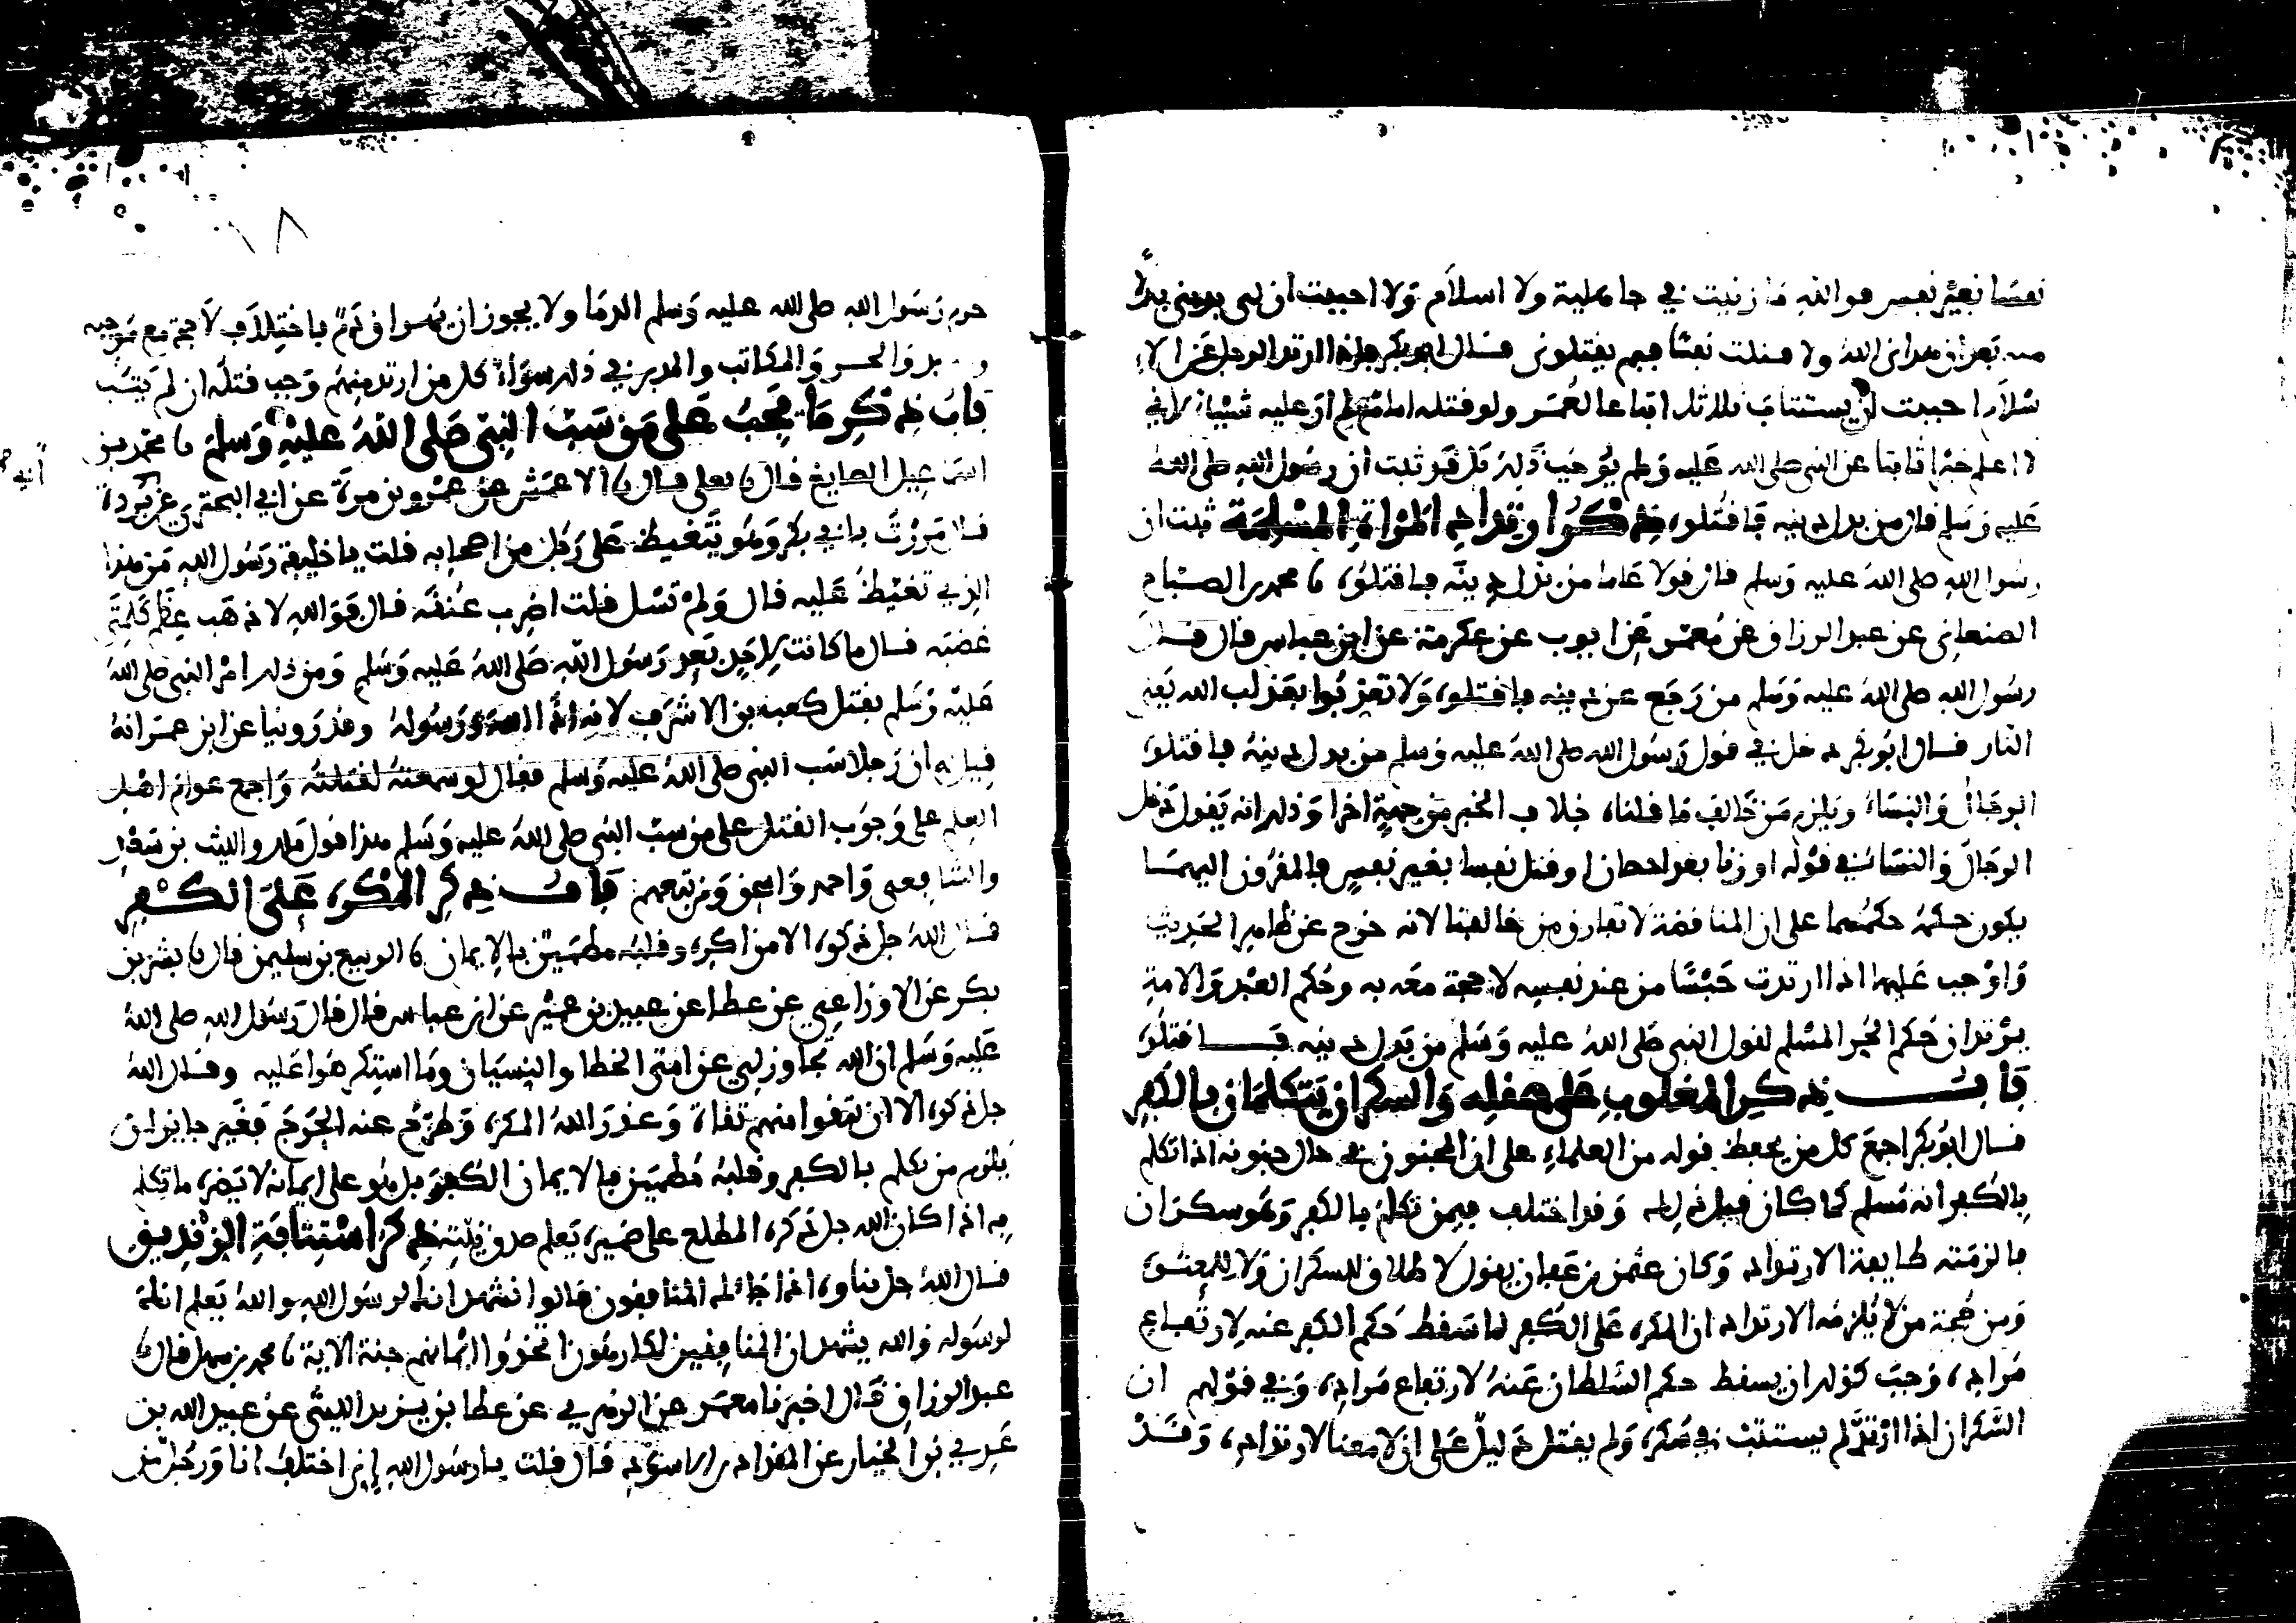 نفسا بغير نفس فوالله ما زنيت في جاهلية ولا اسلام ولا احببت ان لي بديني بدلا
بعد ان هداني الله ولا قتلت نفسا فبم يقتلوني قال ابو بكر فاذا ارتد الرجل عن الا
سلام احببت ان يستتاب ثلاثا اتباعا لعمر ولو قتله امام لم ار عليه شيا لاني
لا اعلم خبرا ثابتا عن النبي صلى الله عليه وسلم يوجب ذلك بل قد ثبت ان رسول الله صلى الله
عليه وسلم قال من بدل دينه فاقتلوه ذكر ارتداد المراة المسلمة ثبت ان
رسول الله صلى الله عليه وسلم قال قولا عاما من بدل دينه فاقتلوه نا محمد بن الصباح
الصنعاني عن عبد الرزاق عن معمر عن ايوب عن عكرمة عن ابن عباس قال قال
رسول الله صلى الله عليه وسلم من رجع عن دينه فاقتلوه ولا تعذبوا بعذاب الله يعني
النار قال ابو بكر دخل في قول رسول الله صلى الله عليه وسلم من بدل دينه فاقتلوه
الرجال والنساء ويلزم من خالف ما قلناه خلاف الخبر من جهة اخرا وذلك انه يقول دخل
الرجال والنسا في قوله او زنا بعد احصان او قتل نفسا بغير نفس فالمقرون اليهما
يكون حكمه حكمهما على ان المناقضة لا تفارق من خالفنا لانه خرج عن ظاهر الحديث
واوجب عليها اذا ارتدت حبسا من عند نفسه لا حجة معه به وحكم العبد والامة
يرتدان حكم الحر المسلم لقول النبي صلى الله عليه وسلم من بدل دينه فاقتلوه
باب ذكر المغلوب على عقله والسكران يتكلمان بالكفر
قال ابو بكر اجمع كل من يحفظ قوله من العلماء على ان المجنون في حال جنونه اذا تكلم
بالكفر انه مسلم كما كان قبل ذلك وقد اختلف فيمن تكلم بالكفر وهو سكران
فالزمته طايفة الارتداد وكان عثمن بن عفان يقول لا طلاق للسكران ولا للمعتوه
ومن حجة من لا يلزمه الارتداد ان المكره على الكفر لما سقط حكم الكفر عنه لارتفاع
مراده وجب كذلك ان يسقط حكم السلطان عنه لارتفاع مراده وفي قولهم ان
السكران اذا ارتد لم يستتب في سكره ولم يقتل دليل على ان لا معنا لارتداده وقد
حرم رسول الله صلى الله عليه وسلم الدما ولا يجوز ان باختلاف لا حجة مع موجبه
والمكاتب والمدبر في ذلك سواء كل من ارتد منهم وجب قتله ان لم يتب
باب ذكر ما يجب على من سب النبي صلى الله عليه وسلم نا محمد بن
اسمعيل الصايغ قال نا يعلى قال نا الاعمش عن عمرو بن مرة عن ابي البختري عن ابي برزة
قال مررت بابي بكر وهو يتغيظ على رجل من اصحابه فقلت يا خليفة رسول الله من هذا
الذي تغيظ عليه قال ولم تسل قلت اضرب عنقه قال فوالله لاذهب عظم كلمتي
غضبه قال ما كانت لاحد بعد رسول الله صلى الله عليه وسلم ومن ذلك امر النبي صلى الله
عليه وسلم بقتل كعب بن الاشرف لانه اذا الله ورسوله وقد روينا عن ابن عمر انه
قيل له ان رجلا سب النبي صلى الله عليه وسلم فقال لو سمعته لقتلته واجمع عوام اهل
العلم على وجوب القتل على من سب النبي صلى الله عليه وسلم هذا قول ملك والليث بن سعد
والشافعي واحمد واسحق ومن تبعهم باب ذكر المكره على الكفر
قال الله جل ذكره الا من اكره وقلبه مطمين بالايمان نا الربيع بن سليمن قال نا بشر بن
بكر عن الاوزاعي عن عطا عن عبيد بن عمير عن ابن عباس قال قال رسول الله صلى الله
عليه وسلم ان الله تجاوز لي عن امتي الخطا والنسيان وما استكرهوا عليه وقال الله
جل ذكره الا ان تتقوا منهم تقاة وعذر الله المكره وطرح عنه الحرج فغير جايز ان
يلزم من تكلم بالكفر وقلبه مطمين بالايمان الكفر بل هو على ايمانه لا يضره ما تكلم
به اذا كان الله جل ذكره المطلع على ضميره يعلم صدق نيته ذكر استتابة الزنديق
قال الله جل ثناوه اذا جاءك المنافقون قالوا نشهد انك لرسول الله والله يعلم انك
لرسوله والله يشهد ان المنافقين لكاذبون اتخذوا ايمانهم جنة الاية نا محمد بن سهل قال نا
عبد الرزاق قال اخبرنا معمر عن الزهري عن عطا بن يزيد الليثي عن عبيد الله بن
عدي بن الخيار عن المقداد بن الاسود قال قلت يا رسول الله اين اختلف انا ورجل من